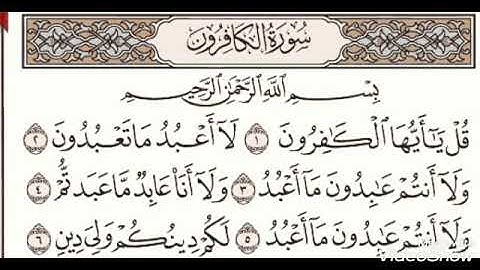 سُورَةُ الكَافِرُونَ
بِسْمِ اللَّهِ الرَّحْمَٰنِ الرَّحِيمِ
قُلْ يَٰٓأَيُّهَا ٱلْكَٰفِرُونَ ١ لَآ أَعْبُدُ مَا تَعْبُدُونَ ٢
وَلَآ أَنتُمْ عَٰبِدُونَ مَآ أَعْبُدُ ٣ وَلَآ أَنَا۠ عَابِدٌ مَّا عَبَدتُّمْ ٤
وَلَآ أَنتُمْ عَٰبِدُونَ مَآ أَعْبُدُ ٥ لَكُمْ دِينُكُمْ وَلِيَ دِينِ ٦
VideoShow